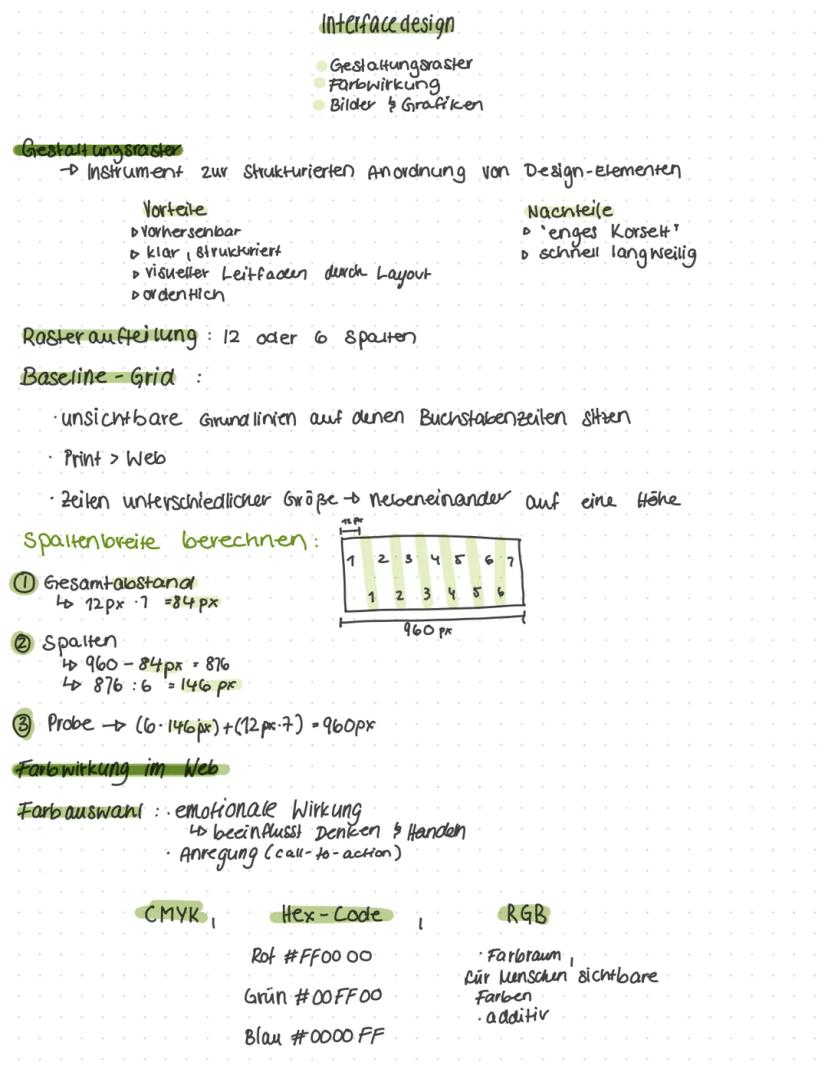 Interfacedesign
Gestaltungsraster
Farbwirkung
Bilder & Grafiken
Gestaltungsraster
→ Instrument zur strukturierten Anordnung von Design-Elementen
Vorteile
▷ vorhersehbar
▷ klar, strukturiert
▷ visueller Leitfaden durch Layout
▷ ordentlich
Nachteile
▷ "enges Korsett"
▷ schnell langweilig
Rasteraufteilung : 12 oder 6 Spalten
Baseline-Grid :
· unsichtbare Grundlinien auf denen Buchstabenzeilen sitzen
· Print > Web
· Zeilen unterschiedlicher Größe → nebeneinander auf eine Höhe
Spaltenbreite berechnen :
12 px
1 2 3 4 5 6 7
1 2 3 4 5 6
960 px
① Gesamtabstand
↳ 12px · 7 = 84 px
② Spalten
↳ 960 - 84px = 876
↳ 876 : 6 = 146 px
③ Probe → (6 · 146px) + (12px · 7) = 960px
Farbwirkung im Web
Farbauswahl : · emotionale Wirkung
↳ beeinflusst Denken & Handeln
· Anregung (call-to-action)
CMYK, Hex-Code , RGB
Rot #FF00 00
Grün #00FF00
Blau #0000 FF
· Farbraum,
für Menschen sichtbare
Farben
· additiv